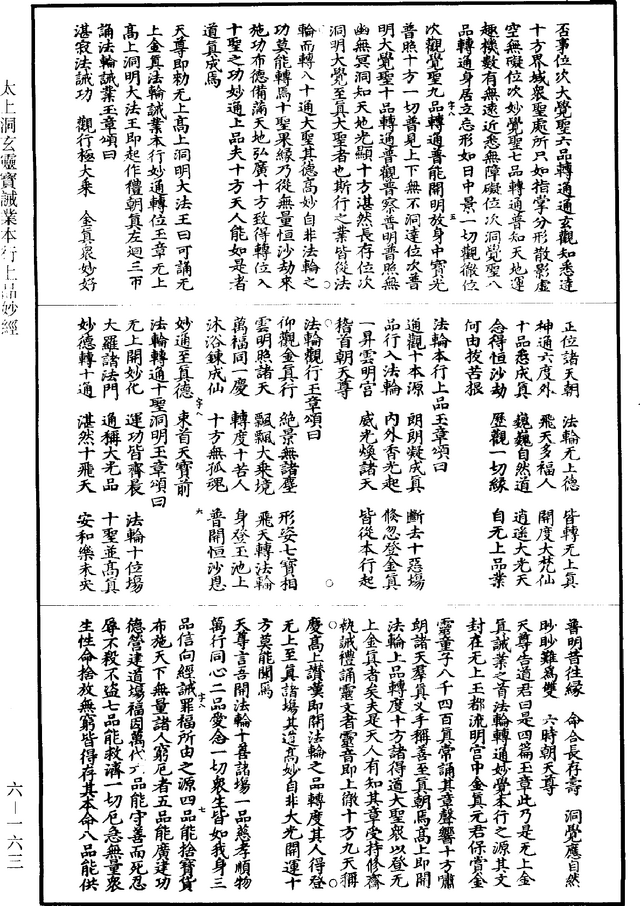 否事位次大覺聖六品轉通通玄觀知悉達
十方界域衆聖處所只如指掌分形散影虛
空無礙位次妙覺聖七品轉通普知天地運
趣機數有無遠近悉無障礙位次洞覺聖八
品轉通身居立忘形如日中景一切觀徹位
次觀覺聖九品轉通普能開明放身中寶光
普照十方一切普見上下無不洞達位次普
明大覺聖十品轉通普觀普察普明普照無
幽無冥洞知天地光顯十方湛然長存位次
洞明大覺至真大聖者也斯行之業皆從法
輪而轉八十通大聖其德高妙自非法輪之
功莫能轉焉十聖果緣乃從無量恒沙劫來
施功布德備滿天地弘廣十方致得轉位入
十聖之功妙通上品夫十方天人能如是者
道真成焉
天尊即勑无上高上洞明大法王曰可誦无
上金真法輪誡業本行妙通轉位玉章无上
高上洞明大法王即起作禮朝真左迴三帀
誦法輪誡業玉章頌曰
湛寂法誡功　觀行極大乘　金真衆妙好
正位諸天朝　法輪无上德　皆轉无上真
神通六度外　飛天多福人　開度大梵仙
十品悉成真　巍巍自然道　逍遙大光天
念得恒沙劫　歷觀一切緣　自无上品業
何由拔苦根
法輪本行上品玉章頌曰
通觀十本源　朗朗凝成真　斷去十惡場
品行入法輪　內外香光起　倏忽登金真
一昇雲明宮　威光煥諸天　皆從本行起
稽首朝天尊
法輪觀行玉章頌曰
仰觀金真行　絶景無諸塵　形姿七寶相
雲明照諸天　飄飄大乘境　飛天轉法輪
萬福同一慶　轉度十苦人　身登玉池上
沐浴鍊成仙　十方無孤魂　普開恒沙恩
妙通至真德　東首天寶前
法輪轉通十聖洞明玉章頌曰
无上開妙化　運功皆齊晨　法輪十位場
大羅諸法門　通稱大光品　十聖並高真
妙德轉十通　湛然十飛天　安和樂未央
普明昔往緣　命合長存壽　洞覺應自然
眇眇難爲雙　六時朝天尊
天尊告道君曰是四篇玉章此乃是无上金
真誡業之首法輪轉通妙覺本行之源其文
封在无上玉都流明宮中金真元君保賞金
靈童子八千四百真常誦其章聲響十方嘯
朗諸天羣真叉手稱善至真朝焉高上即開
法輪上品轉度十方諸得道大聖衆以登无
上金真者矣夫是天人有知其章受持修齋
執誡禮誦靈文者靈音即上徹十方九天稱
慶高上讚業即開法輪之品轉度其人得登
无上至真諸場其道高妙自非大光開運十
方莫能聞焉
天尊言吾開法輪十善諸場一品慈孝順物
萬行同心二品愛念一切衆生皆如我身三
品信向經誡罪福所由之源四品能捨寶貨
布施天下無量諸人窮厄者五品能廣建功
德營建道場福因萬代六品能守善而死忍
辱不殺不盜七品能救濟一切厄急無量衆
生性命捨放無窮皆得存其本命八品能供
太上洞玄靈寶誡業本行上品妙經
六－一六三